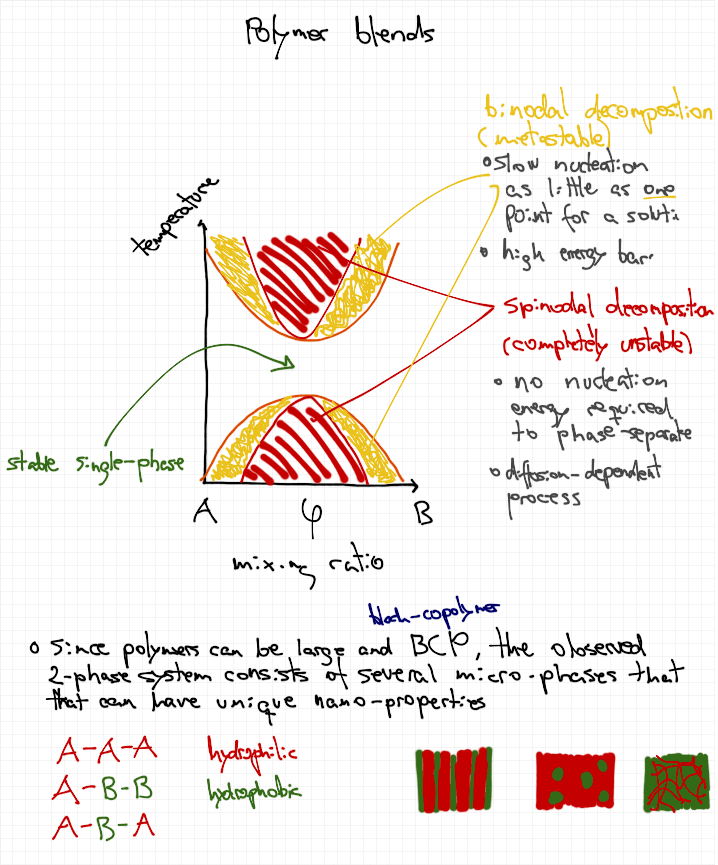 Polymer blends
binodal decompostion
(metastable)
• slow nucleation
as little as one
point for a soluti
• high energy bar
spinodal decomposition
(completely unstable)
• no nucleation
energy required
to phase-separate
• diffusion-dependent
process
temperature
stable single-phase
A φ B
mixing ratio
block-copolymer
• Since polymers can be large and BCP, the observed
2-phase system consists of several micro-phases that
that can have unique nano-properties
A-A-A hydrophilic
A-B-B hydrophobic
A-B-A